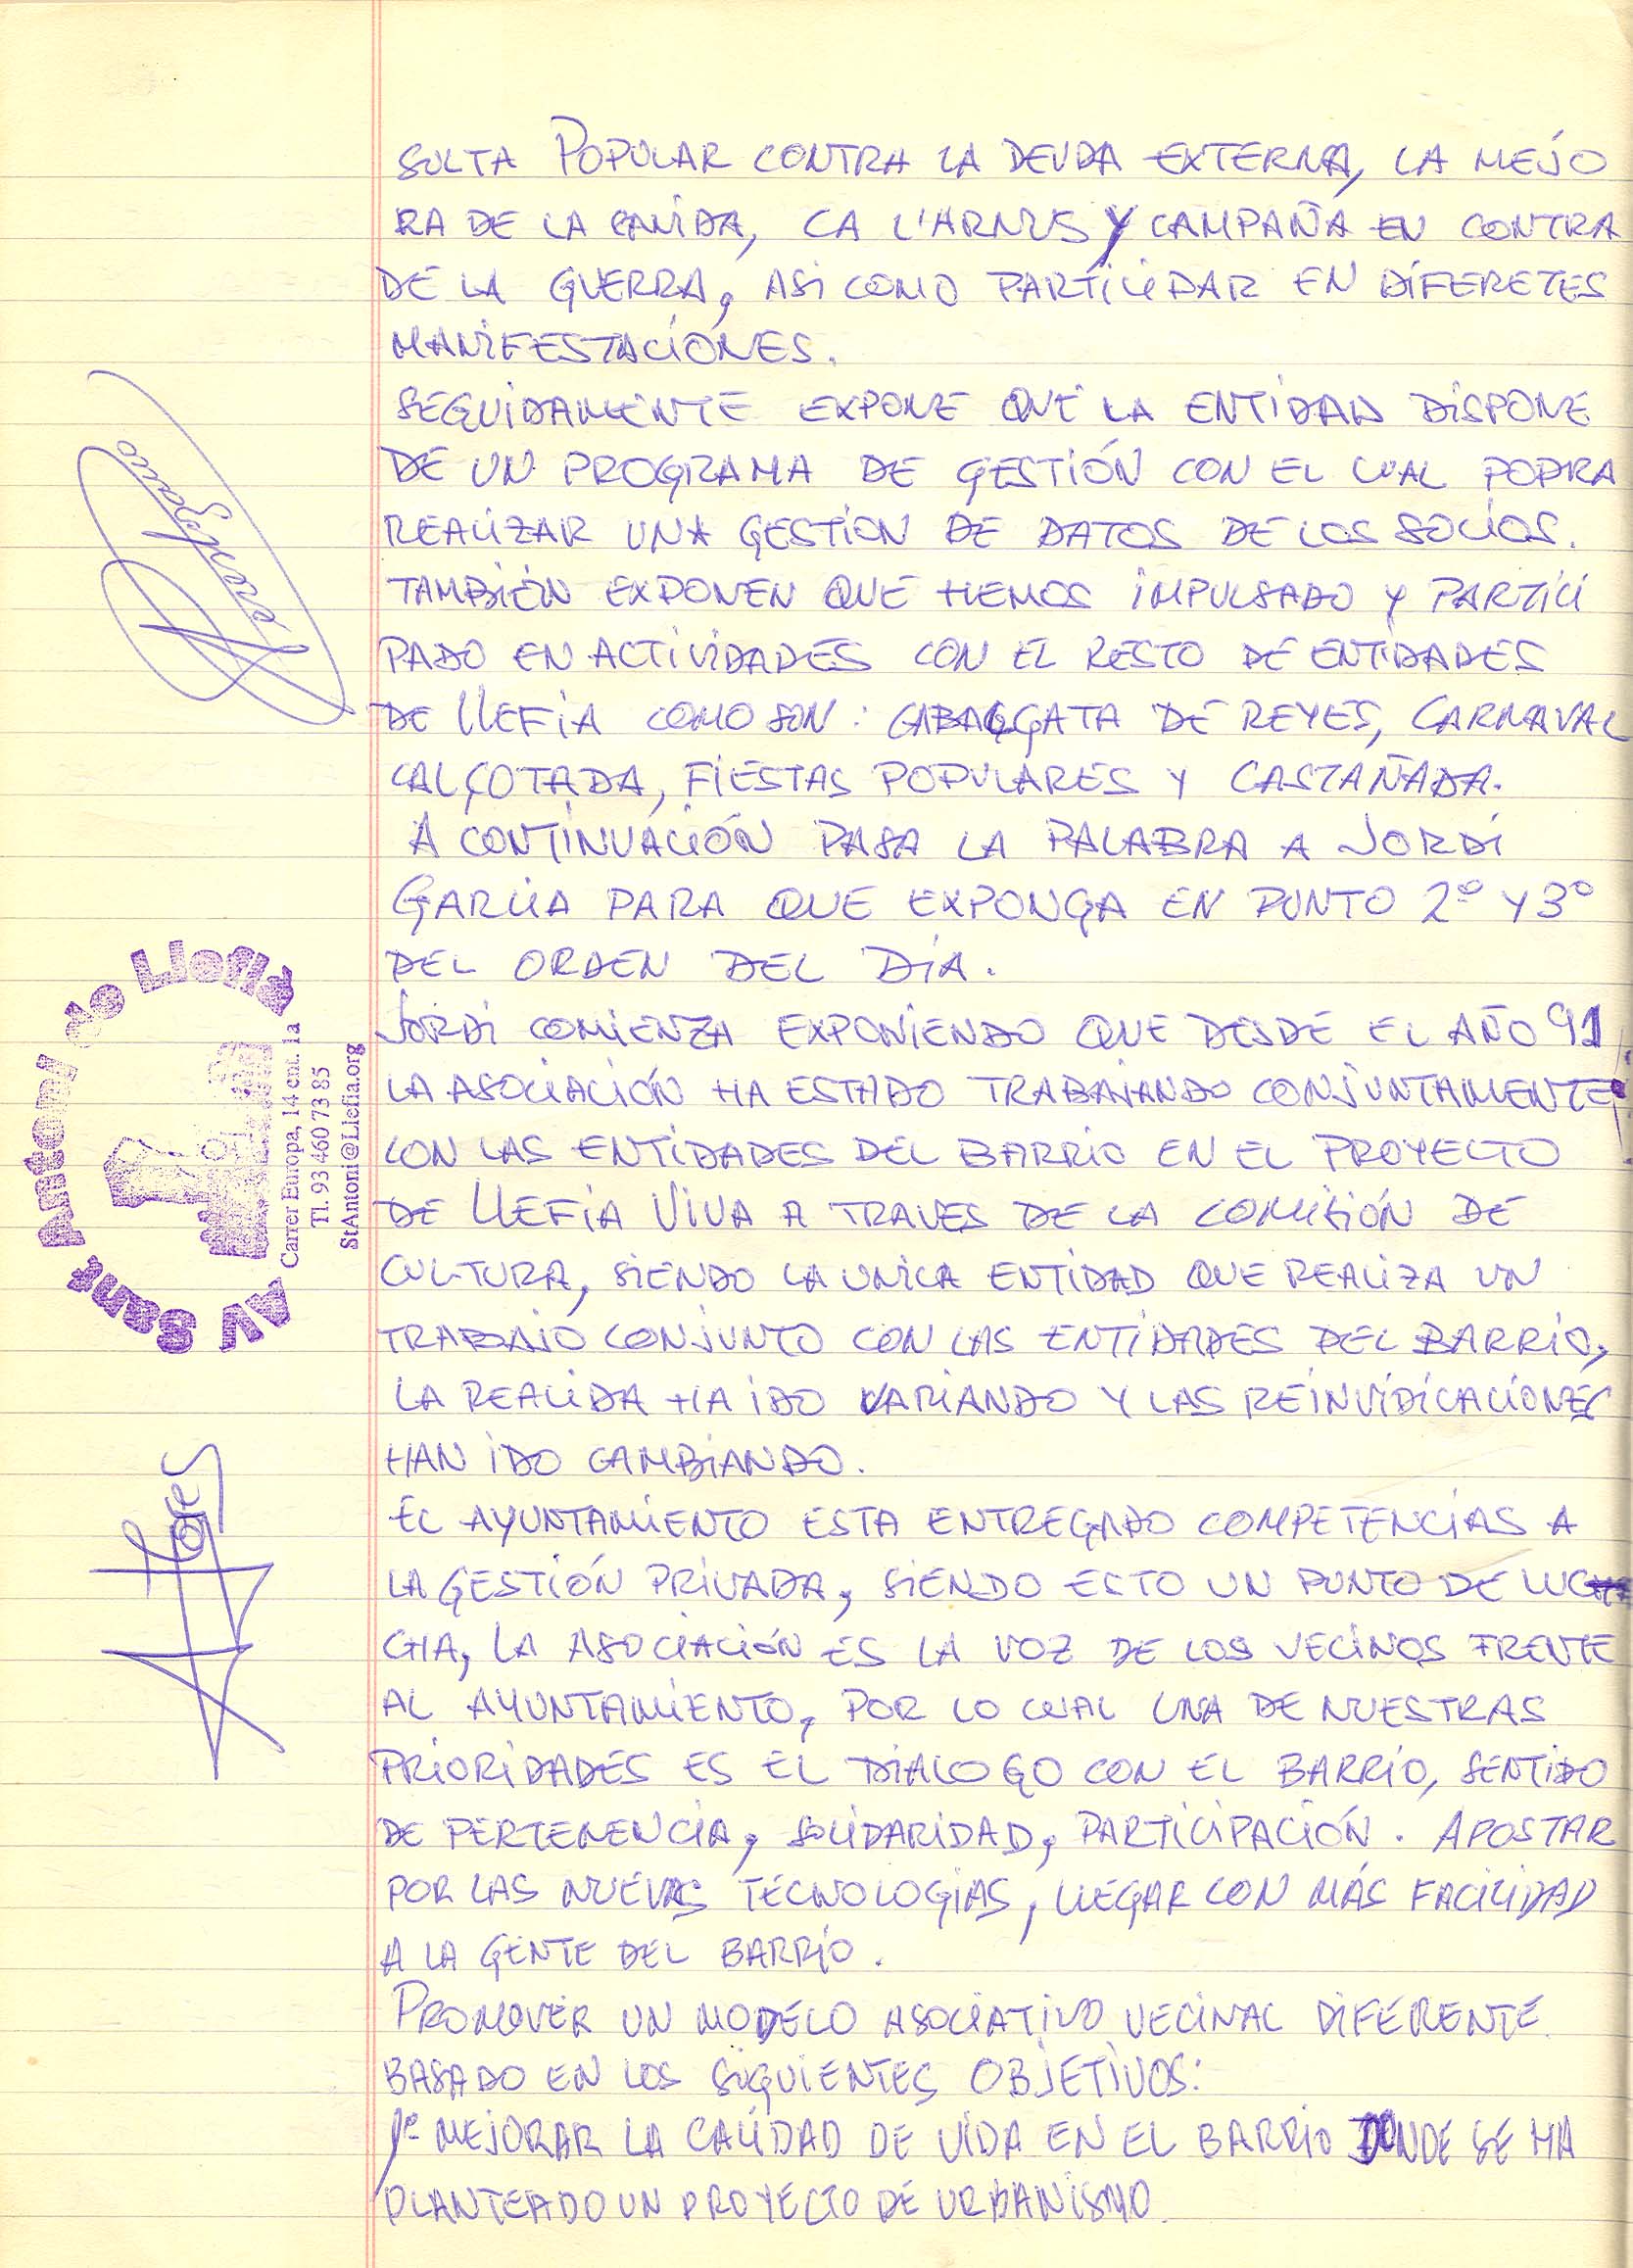 SULTA POPULAR CONTRA LA DEUDA EXTERNA, LA MEJO
RA DE LA SANIDA, CA L'ARNUS Y CAMPAÑA EN CONTRA
DE LA GUERRA, ASI COMO PARTICIPAR EN DIFERETES
MANIFESTACIONES.
SEGUIDAMENTE EXPONE QUE LA ENTIDAD DISPONE
DE UN PROGRAMA DE GESTIÓN CON EL CUAL PODRA
REALIZAR UNA GESTION DE DATOS DE LOS SOCIOS.
TAMBIÉN EXPONEN QUE HEMOS IMPULSADO Y PARTICI
PADO EN ACTIVIDADES CON EL RESTO DE ENTIDADES
DE LLEFIA COMO SON: CABALGATA DE REYES, CARNAVAL
CALÇOTADA, FIESTAS POPULARES Y CASTAÑADA.
A CONTINUACIÓN PASA LA PALABRA A JORDI
GARCIA PARA QUE EXPONGA EN PUNTO 2º Y 3º
DEL ORDEN DEL DÍA.
JORDI COMIENZA EXPONIENDO QUE DESDE EL AÑO 91
LA ASOCIACIÓN HA ESTADO TRABAJANDO CONJUNTAMENTE
CON LAS ENTIDADES DEL BARRIO EN EL PROYECTO
DE LLEFIA VIVA A TRAVES DE LA COMISIÓN DE
CULTURA, SIENDO LA UNICA ENTIDAD QUE REALIZA UN
TRABAJO CONJUNTO CON LAS ENTIDADES DEL BARRIO,
LA REALIDA HA IDO VARIANDO Y LAS REINVIDICACIONES
HAN IDO CAMBIANDO.
EL AYUNTAMIENTO ESTA ENTREGADO COMPETENCIAS A
LA GESTIÓN PRIVADA, SIENDO ESTO UN PUNTO DE
GIA, LA ASOCIACIÓN ES LA VOZ DE LOS VECINOS FRENTE
AL AYUNTAMIENTO, POR LO CUAL UNA DE NUESTRAS
PRIORIDADES ES EL DIALOGO CON EL BARRIO, SENTIDO
DE PERTENENCIA, SOLIDARIDAD, PARTICIPACIÓN. APOSTAR
POR LAS NUEVAS TECNOLOGIAS, LLEGAR CON MÁS FACILIDAD
A LA GENTE DEL BARRIO.
PROMOVER UN MODELO ASOCIATIVO VECINAL DIFERENTE
BASADO EN LOS SIGUIENTES OBJETIVOS:
1º MEJORAR LA CALIDAD DE VIDA EN EL BARRIO DONDE SE HA
PLANTEADO UN PROYECTO DE URBANISMO.
AV Sant Antoni de Llefià
Carrer Europa, 14 cnt. 1a
Tl. 93 460 73 85
StAntoni@Llefia.org